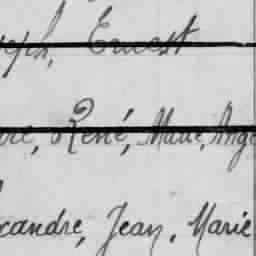 eph, Ernest
re, René, Marie, Ange
xandre, Jean, Marie